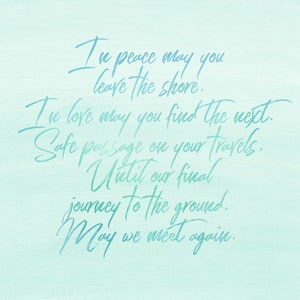 In peace may you
leave the shore.
In love may you find the next.
Safe passage on your travels.
Until our final
journey to the ground.
May we meet again.